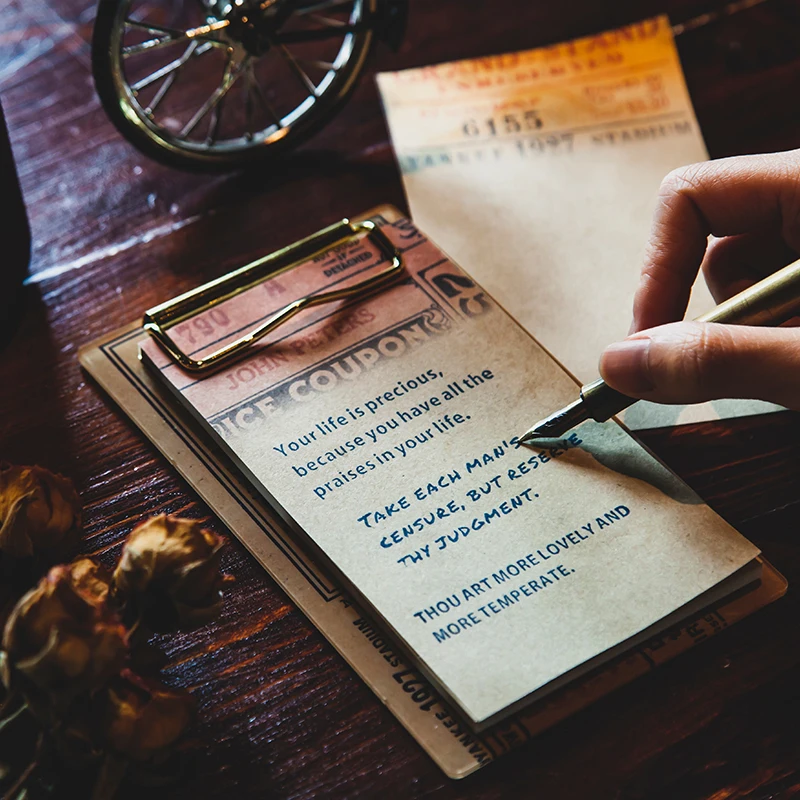 GRAND-STAND
6155
YANKEE 1927 STADIUM
NOT GOOD
IF
DETACHED
790 A
JOHN PETERS
ICE COUPON
Your life is precious,
because you have all the
praises in your life.
TAKE EACH MAN'S
CENSURE, BUT RESERVE
THY JUDGMENT.
THOU ART MORE LOVELY AND
MORE TEMPERATE.
YANKEE 1927 STADIUM